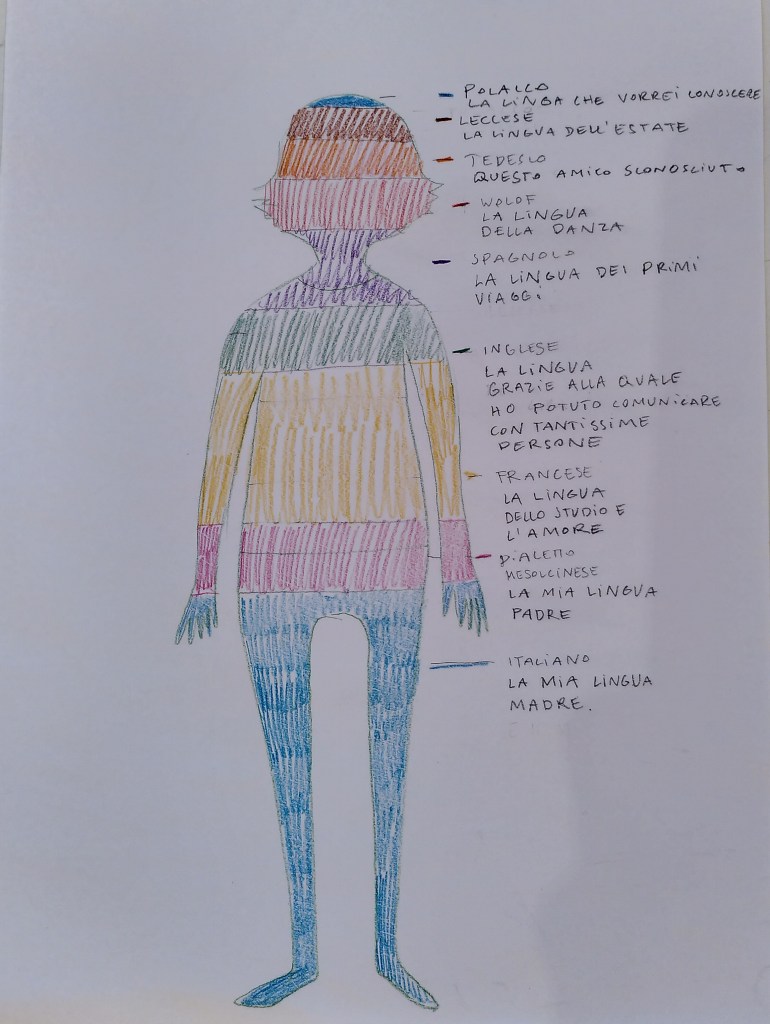 POLACCO
LA LINGA CHE VORREI CONOSCERE
LECCESE
LA LINGUA DELL'ESTATE
TEDESCO
QUESTO AMICO SCONOSCIUTO
WOLOF
LA LINGUA
DELLA DANZA
SPAGNOLO
LA LINGUA DEI PRIMI
VIAGGI
INGLESE
LA LINGUA
GRAZIE ALLA QUALE
HO POTUTO COMUNICARE
CON TANTISSIME
PERSONE
FRANCESE
LA LINGUA
DELLO STUDIO E
L'AMORE
DIALETTO
MESOLCINESE
LA MIA LINGUA
PADRE
ITALIANO
LA MIA LINGUA
MADRE.